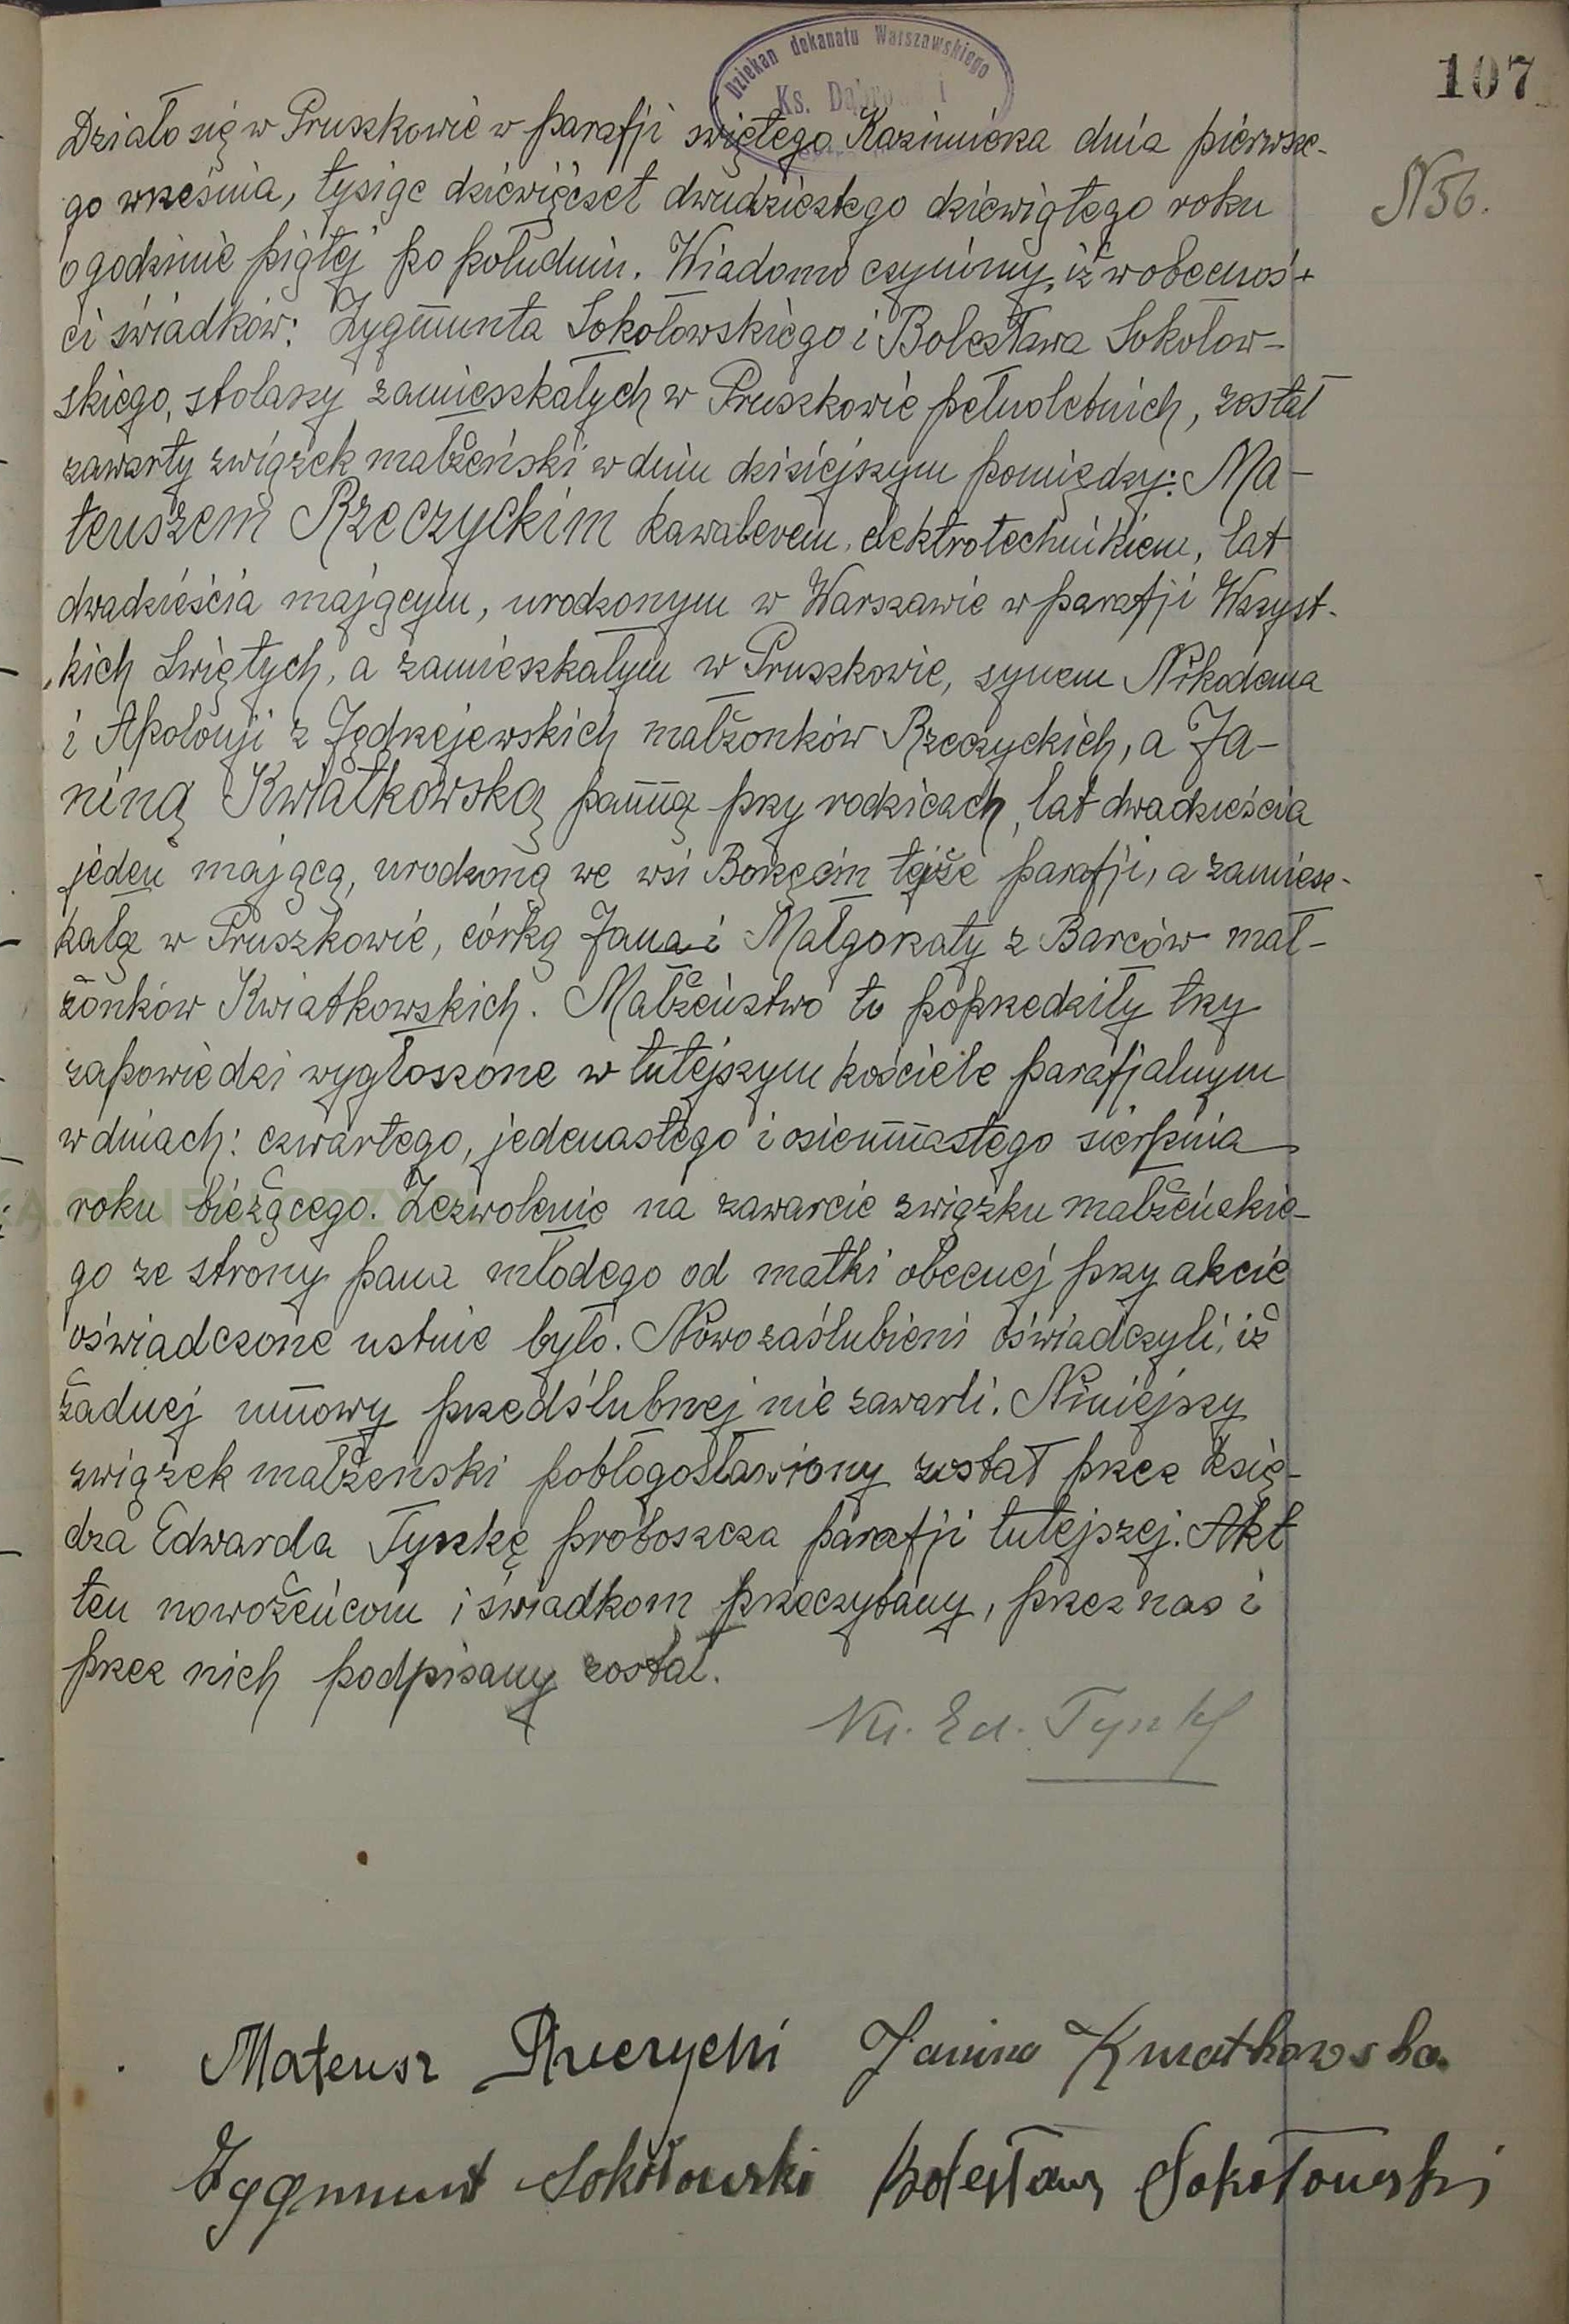 Dziekan dekanatu Warszawskiego
Ks.
107
Działo się w Pruszkowie w parafji świętego Kazimierza dnia pierwsze-
N 56.
go września, tysiąc dziewięćset dwudziestego dziewiątego roku
o godzinie piątej po południu. Wiadomo czynimy, iż w obecnoś-
ci świadków: Zygmunta Sokołowskiego i Bolesława Sokołow-
skiego, stolarzy zamieszkałych w Pruszkowie pełnoletnich, został
zawarty związek małżeński w dniu dzisiejszym pomiędzy: Ma-
teuszem Rzeczyckim kawalerem, elektrotechnikiem, lat
dwadzieścia mającym, urodzonym w Warszawie w parafji Wszyst-
kich Świętych, a zamieszkałym w Pruszkowie, synem Nikodema
i Apolonji z Jędrzejewskich małżonków Rzeczyckich, a Ja-
niną Kwiatkowską panną przy rodzicach, lat dwadzieścia
jeden mającą, urodzoną we wsi Borzęcin tejże parafji, a zamiesz-
kałą w Pruszkowie, córką Jana i Małgorzaty z Barców mał-
żonków Kwiatkowskich. Małżeństwo to poprzedziły trzy
zapowiedzi wygłoszone w tutejszym kościele parafjalnym
w dniach: czwartego, jedenastego i osiemnastego sierpnia
roku bieżącego. Zezwolenie na zawarcie związku małżeńskie-
go ze strony pana młodego od matki obecnej przy akcie
oświadczone ustnie było. Nowozaślubieni oświadczyli, iż
żadnej umowy przedślubnej nie zawarli. Niniejszy
związek małżenski pobłogosławiony został przez księ-
dza Edwarda Tyszkę proboszcza parafji tutejszej. Akt
ten nowożeńcom i świadkom przeczytany, przez nas i
przez nich podpisany został.
Ed.
Mateusz Rzeczycki Janina Kwiatkowska
Zygmunt Sokołowski Bolesław Sokołowski